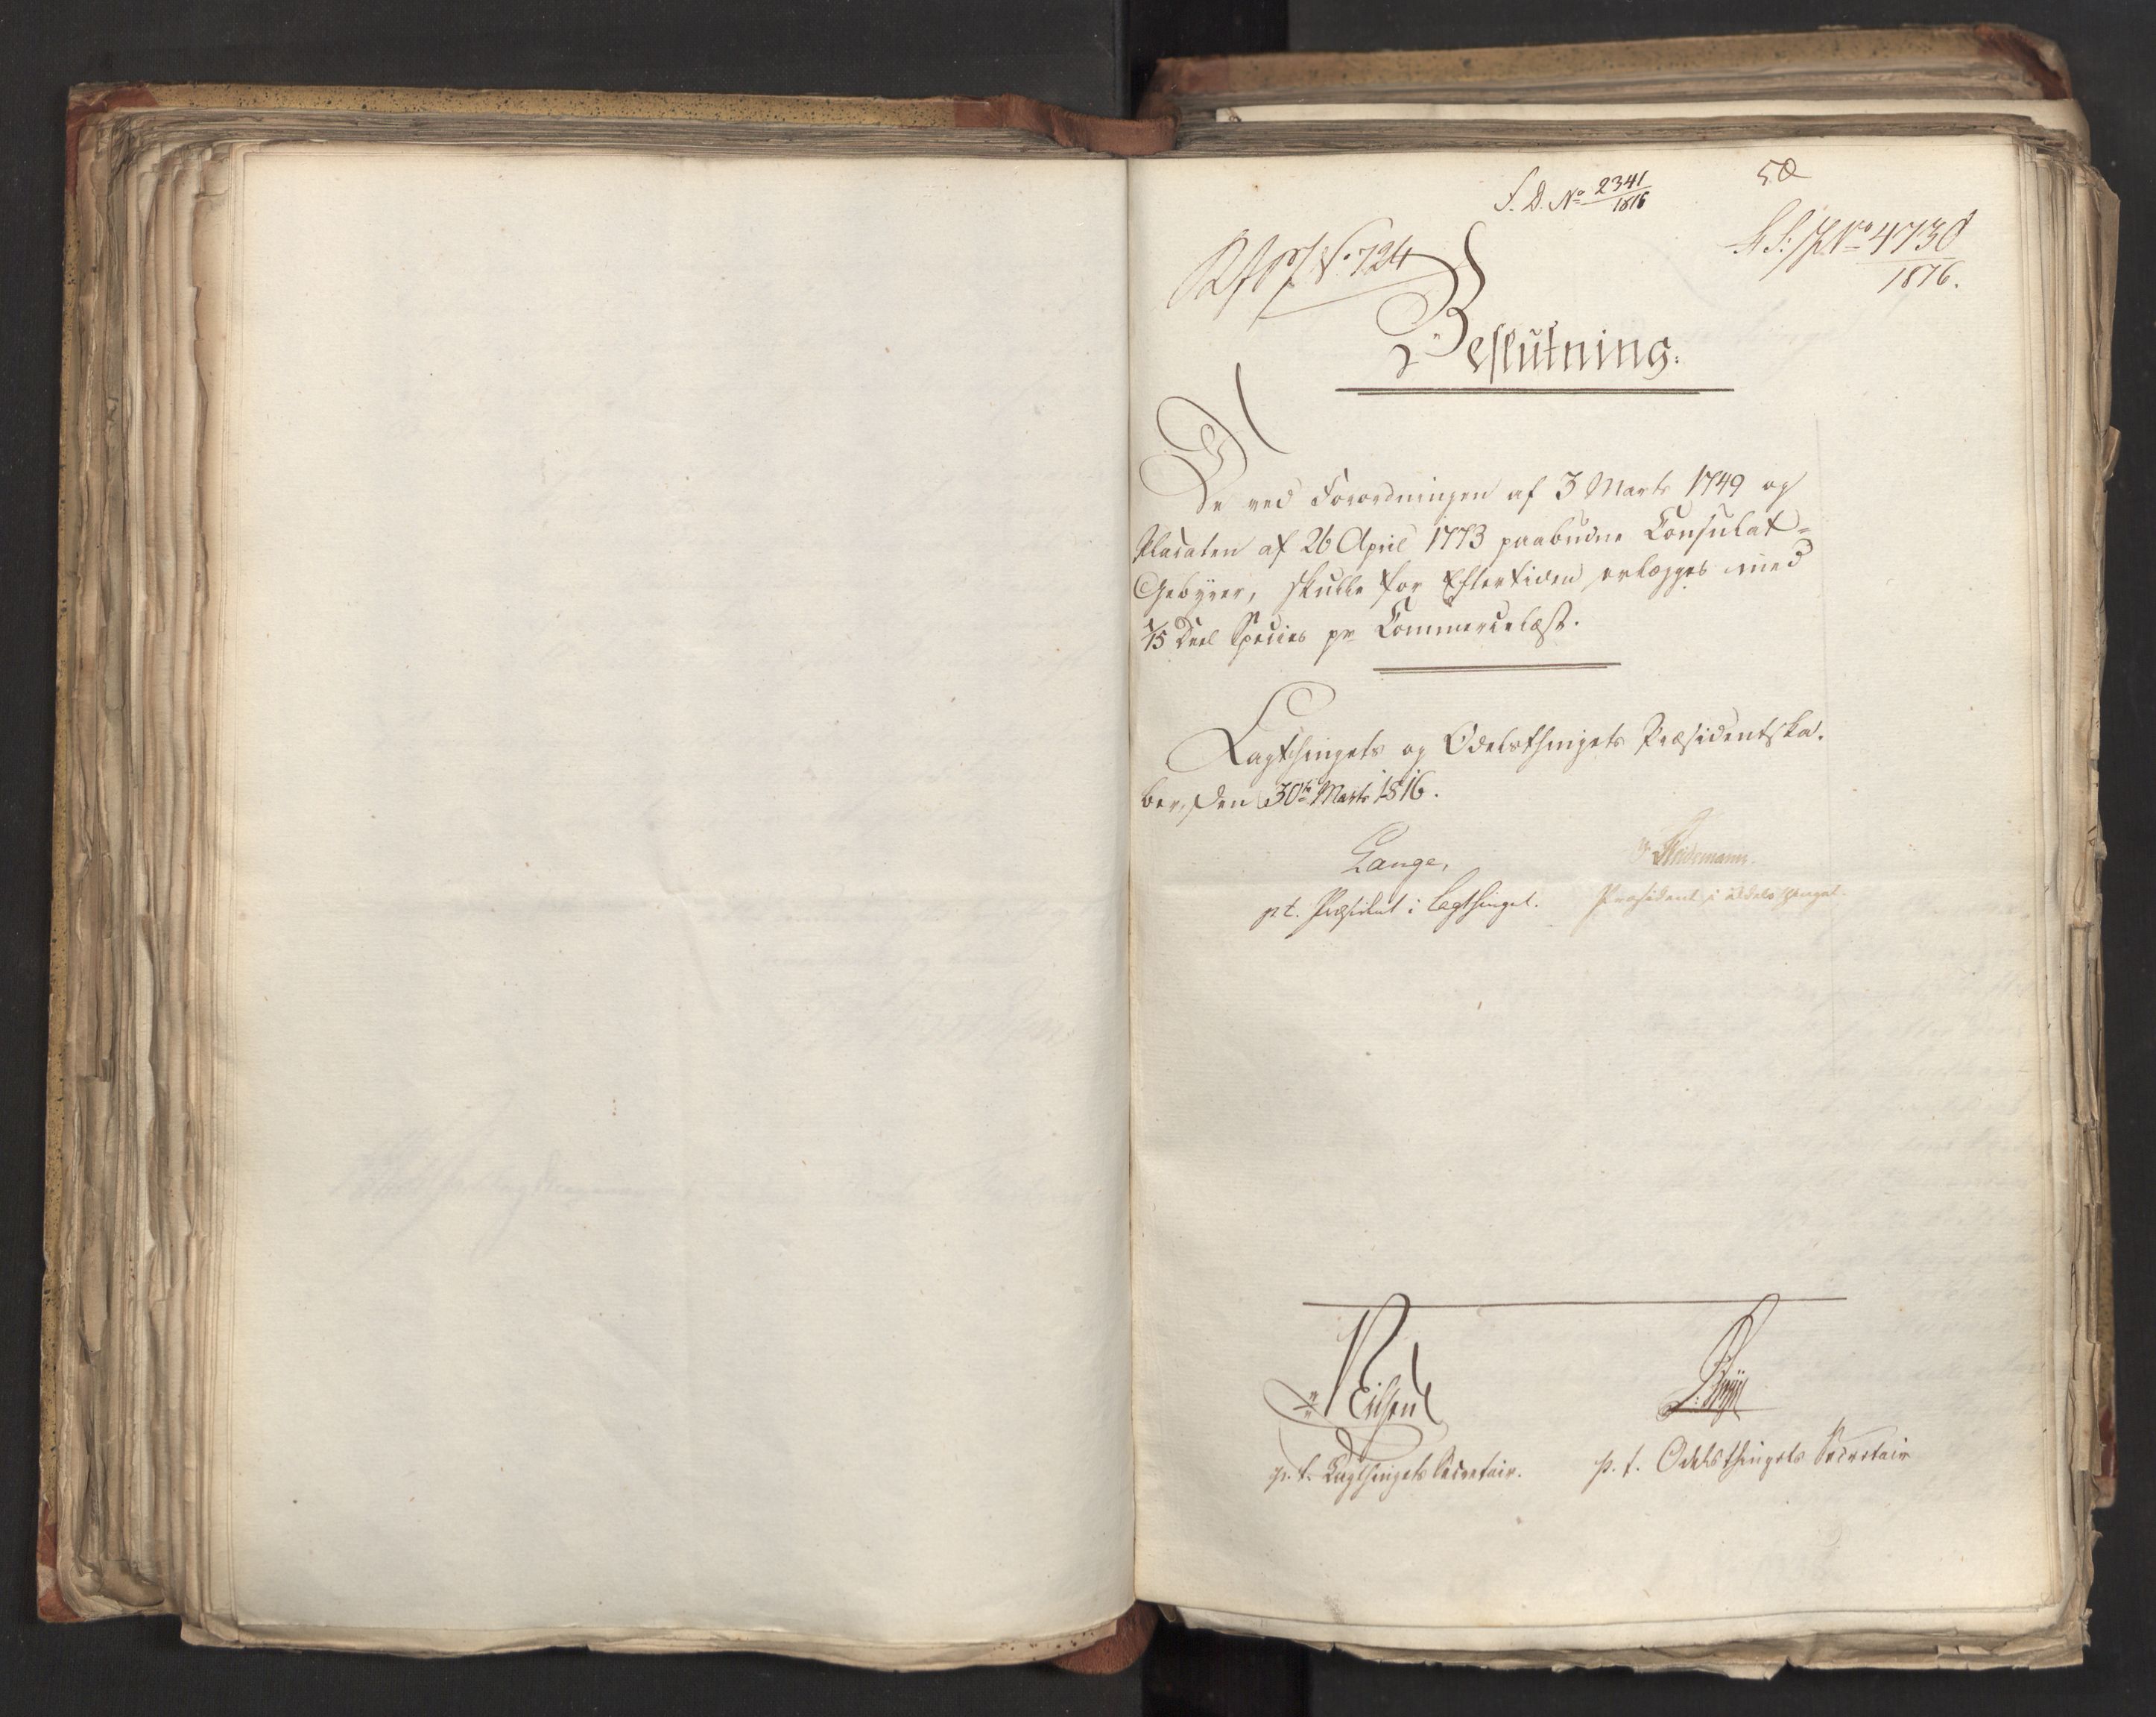 F. D. No 2341/1816
50
No 724
No 4730
1816.
Beslutning.
De ved Forordningen af 3 Marts 1749 og
Placaten af 26 April 1773 paabudne Consulat-
Gebyrer, skulle for Eftertiden erlægges med
1/15 Deel Species pr Commercelæst.
Lagthingets og Odelsthingets Præsidentska-
ber, den 30te Marts 1816.
Lange,
Weidemann.
p. t. Præsident i Lagthinget.
Præsident i Odelsthinget.
p. t. Lagthingets Secretair.
p. t. Odelsthingets Secretair